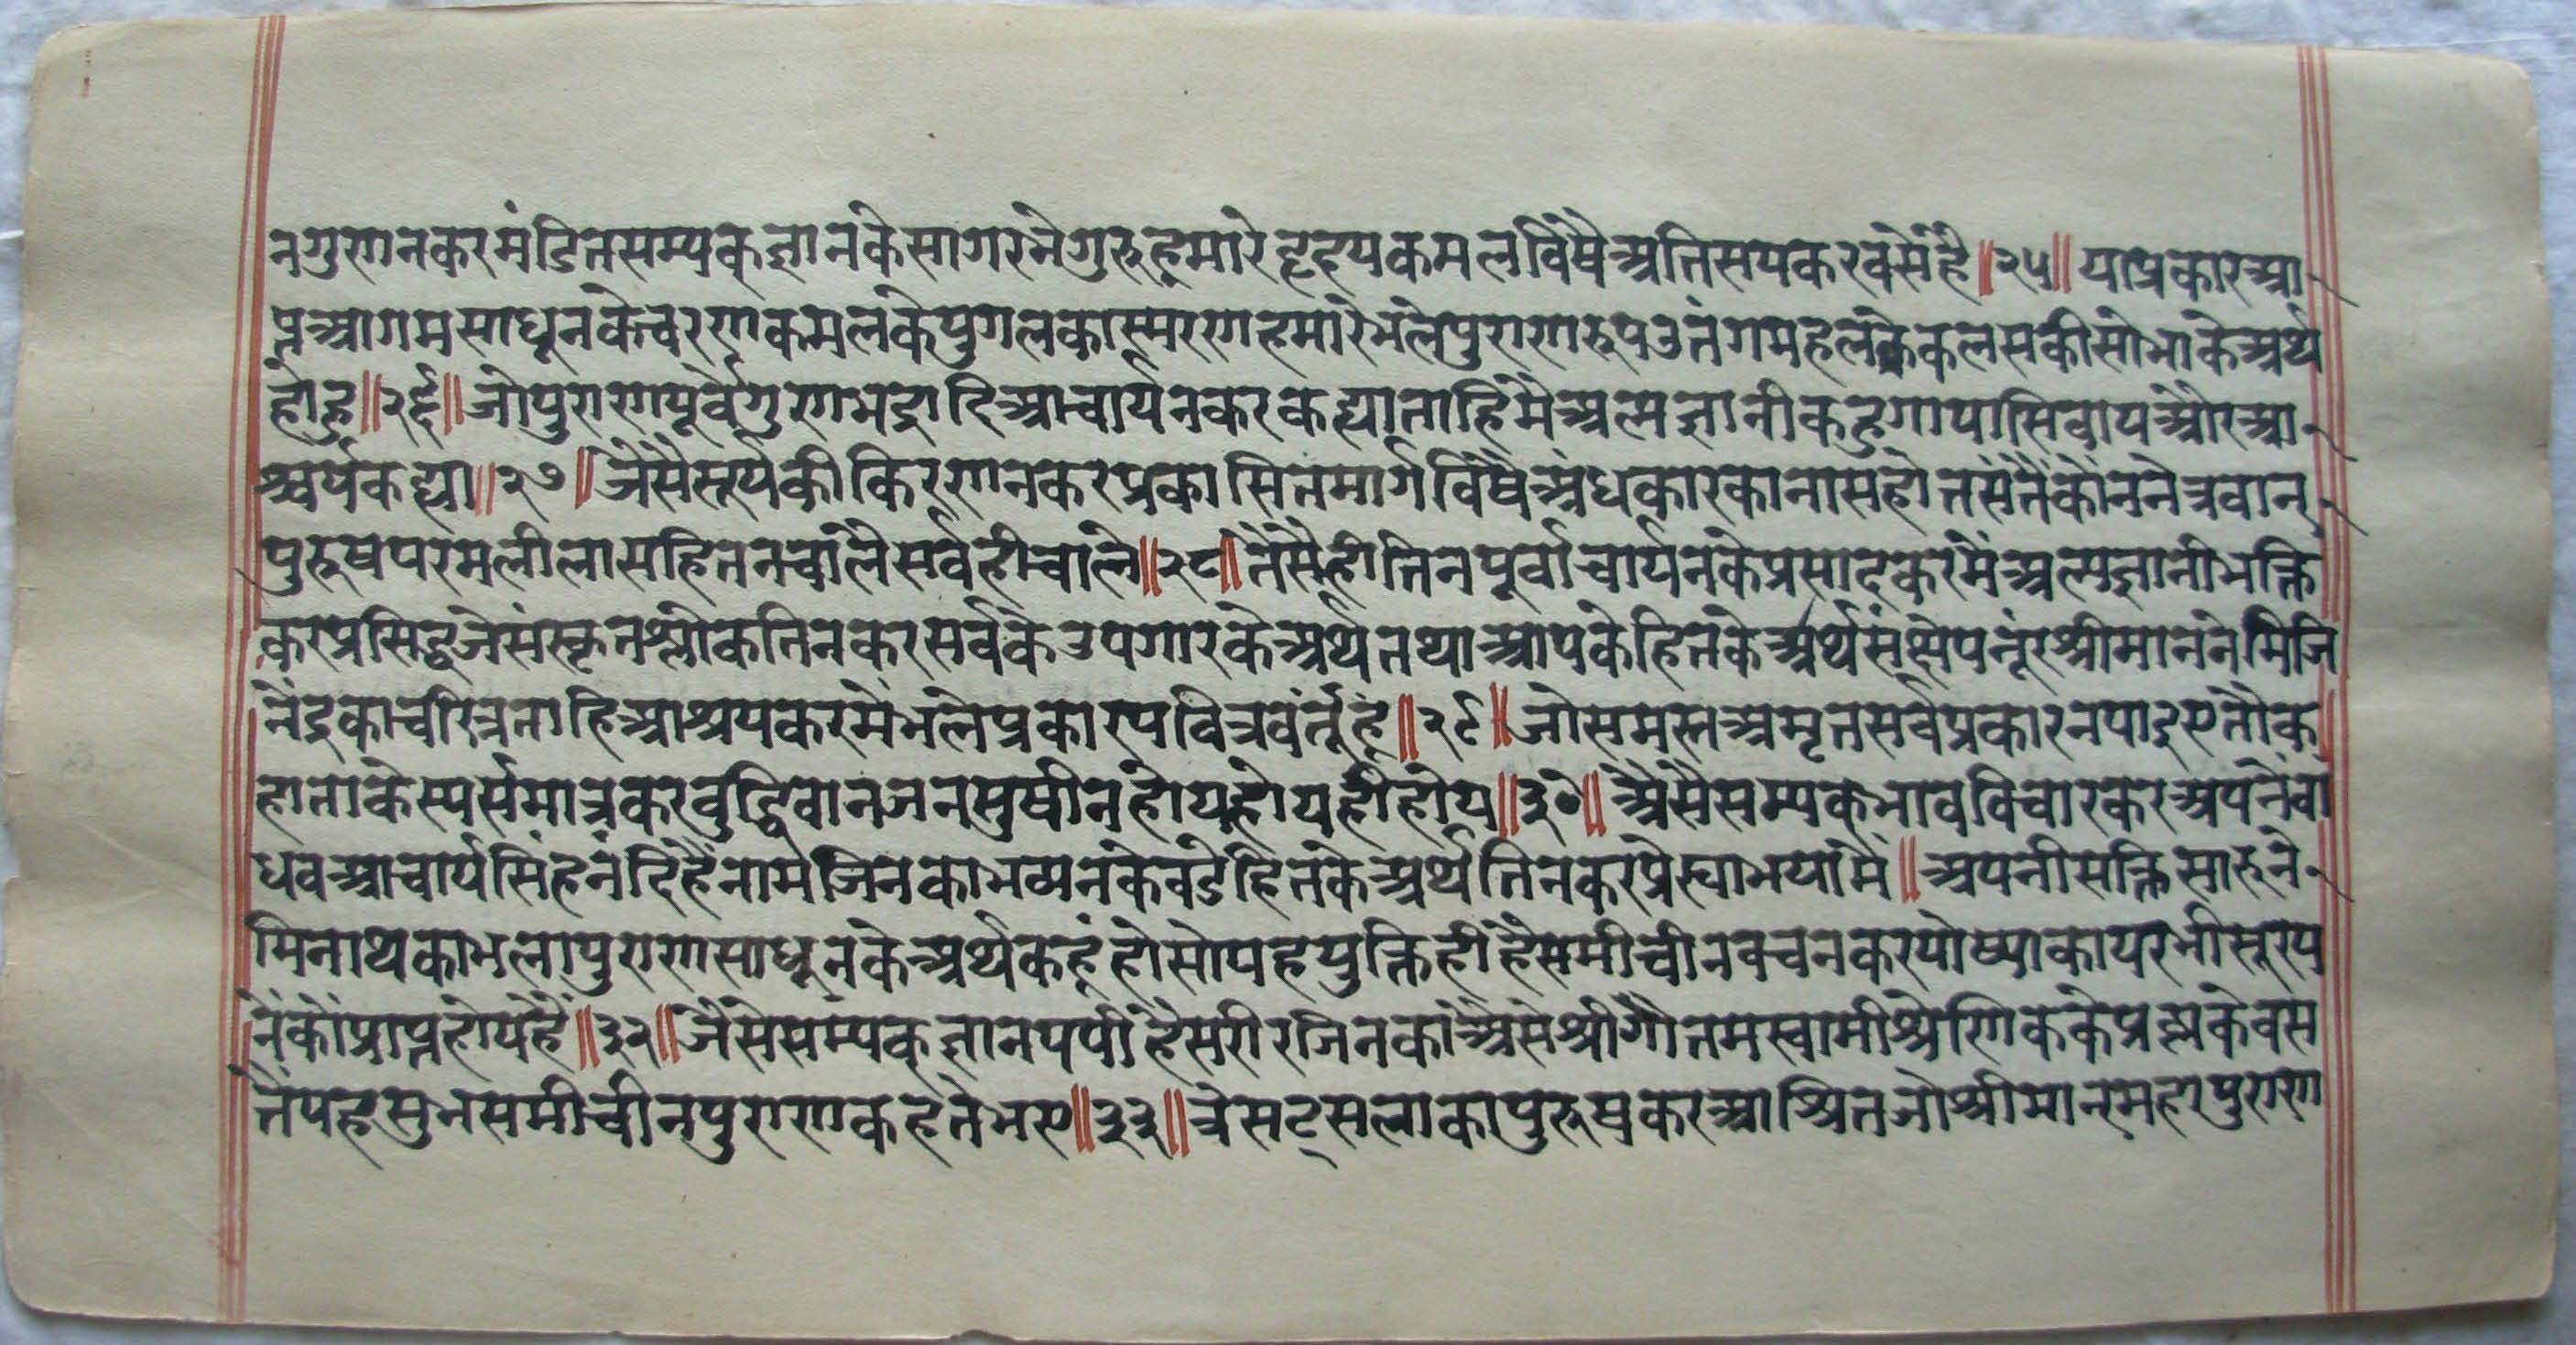 नगुणनकरमंडितसम्यक्ज्ञानकेसागरतेगुरुहमारेहृदयकमलविषैअतिसयकरवसैंहै॥२५॥ याप्रकारआ
प्तआगमसाधूनकेचरणकमलकेयुगलकास्मरणहमारेभलेपुराणरूपउतंगमहलकेकलसकीसोभाकेअर्थ
होहु॥२६॥जोपुराणपूर्वैगुणभद्रादिआचार्यनकरकह्याताहिमैअल्पज्ञानीकहुगायासिवायऔरआ
श्चर्यकह्या॥२७॥जैसैसूर्यकीकिरणनकरप्रकासितमार्गविषैअंधकारकानासहोतसंतैकोननेत्रवान
पुरुषपरमलीलासहितनचालैसर्वहीचाले॥२८॥तैसैहीतिनपूर्वाचार्यनकेप्रसादकरमैंअल्पज्ञानीभक्ति
करप्रसिद्धजेसंस्कृतश्लोकतिनकरसर्वकेउपगारकेअर्थतथाआपकेहितकेअर्थसंक्षेपनूंरश्रीमाननेमिजि
नेंद्रकाचरित्रताहिआश्रयकरमैंभलेप्रकारपवित्रवंतूंहूं॥२९॥जोसमस्तअमृतसर्वप्रकारनपाइएतौक
हाताकेस्पर्समात्रकरबुद्धिवानजनसुषीनहोयहोयहीहोय॥३०॥अैसैसम्यक्भावविचारकरअपनेंवां
धवआचार्यसिंहनंदिहैंनामजिनकाभव्यनकेवडेहितकेअर्थतिनकरप्रेर्याभयामैं॥अपनीसक्तिसारुने
मिनाथकाभलापुराणसाधूनकेअर्थकहूंहोसोयहयुक्तिहीहैसमीचीनवचनकरपोष्याकायरभीसूरप
नेंकोंप्राप्तहोयहैं॥३२॥जैसेसम्यक्ज्ञानमयीहैसरीरजिनकाअैसेश्रीगौतमस्वामीश्रेणिककेप्रश्नकेवस
तैंयहसुनसमीचीनपुराणकहतेभए॥३३॥त्रेसट्सलाकापुरुषकरआश्रितजोश्रीमानमहापुराण